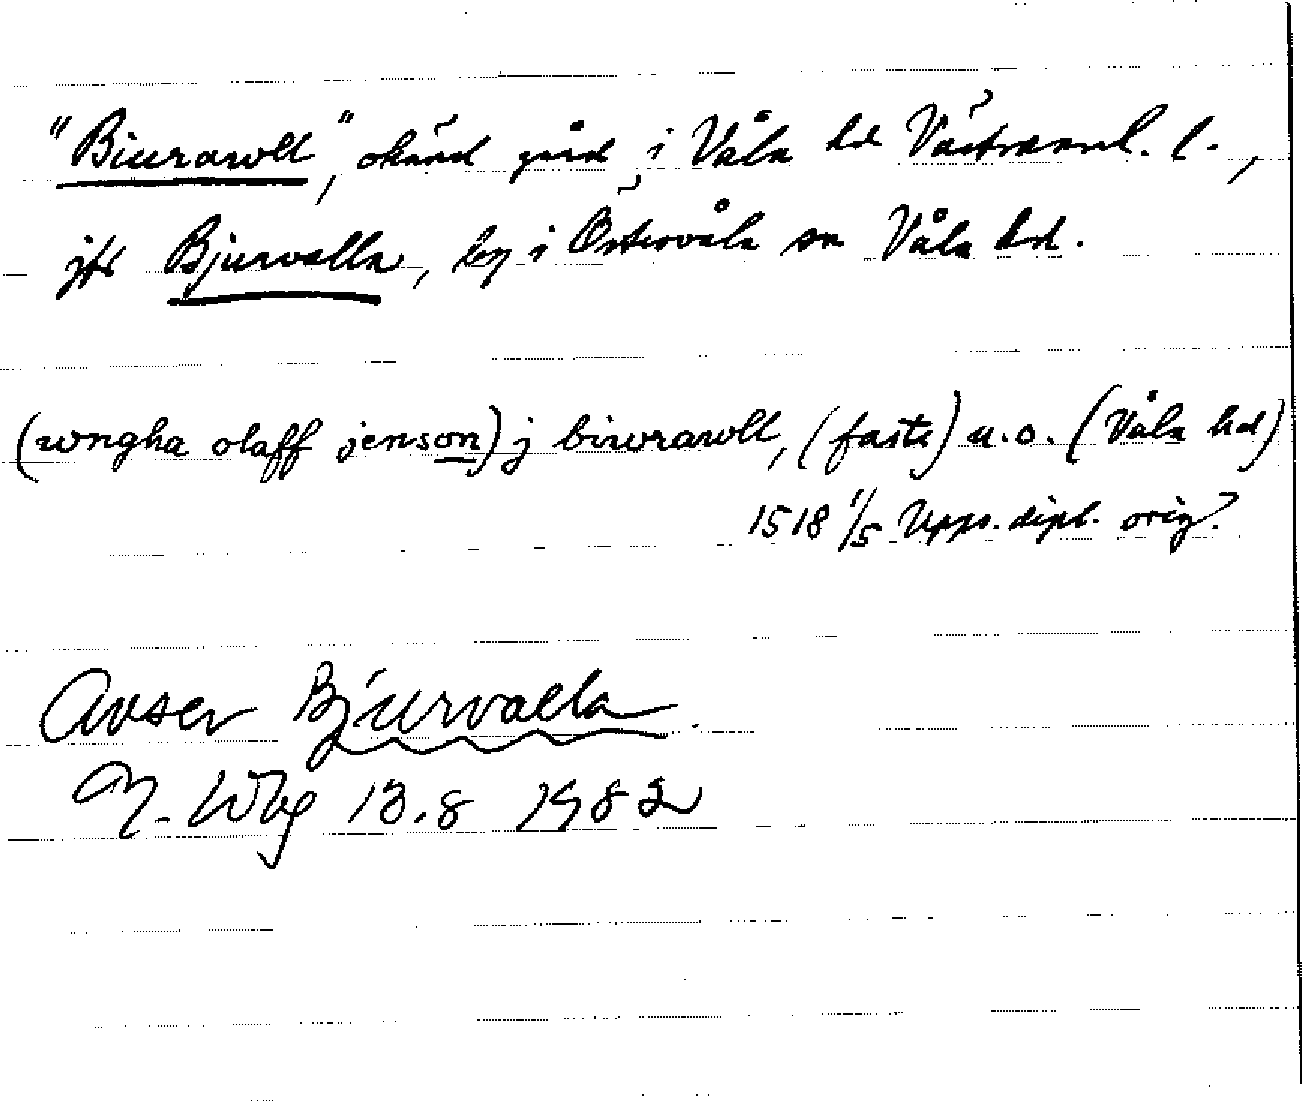 "Biurawll", okänd gård i Våla hd Västmanl. l.,
jfr Bjurvalla, by i Östervåla sn Våla hd.
(wngha olaff jenson) j biwrawll, (faste) u.o. (Våla hd)
1518 1/5 Upps. dipl. orig.
Avser Bjurvalla.
13.8 1982